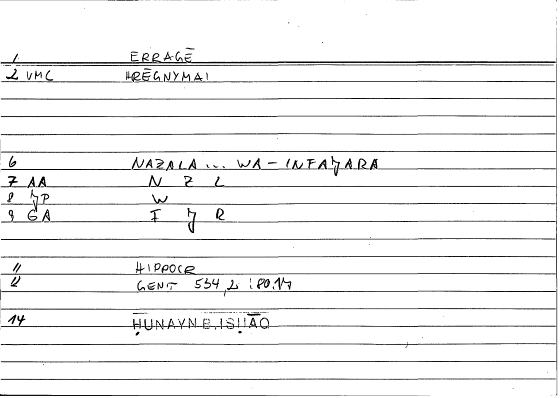 1 ERRAGĒ
2 VMC HRĒGNYMAI
6 NAZALA ... WA-INFAǧARA
7 AA N Z L
8 P W
9 GA F ǧ R
11 HIPPOCR
12 GENT 534,2 :80.17
14 ḤUNAYN B. ISḤĀQ